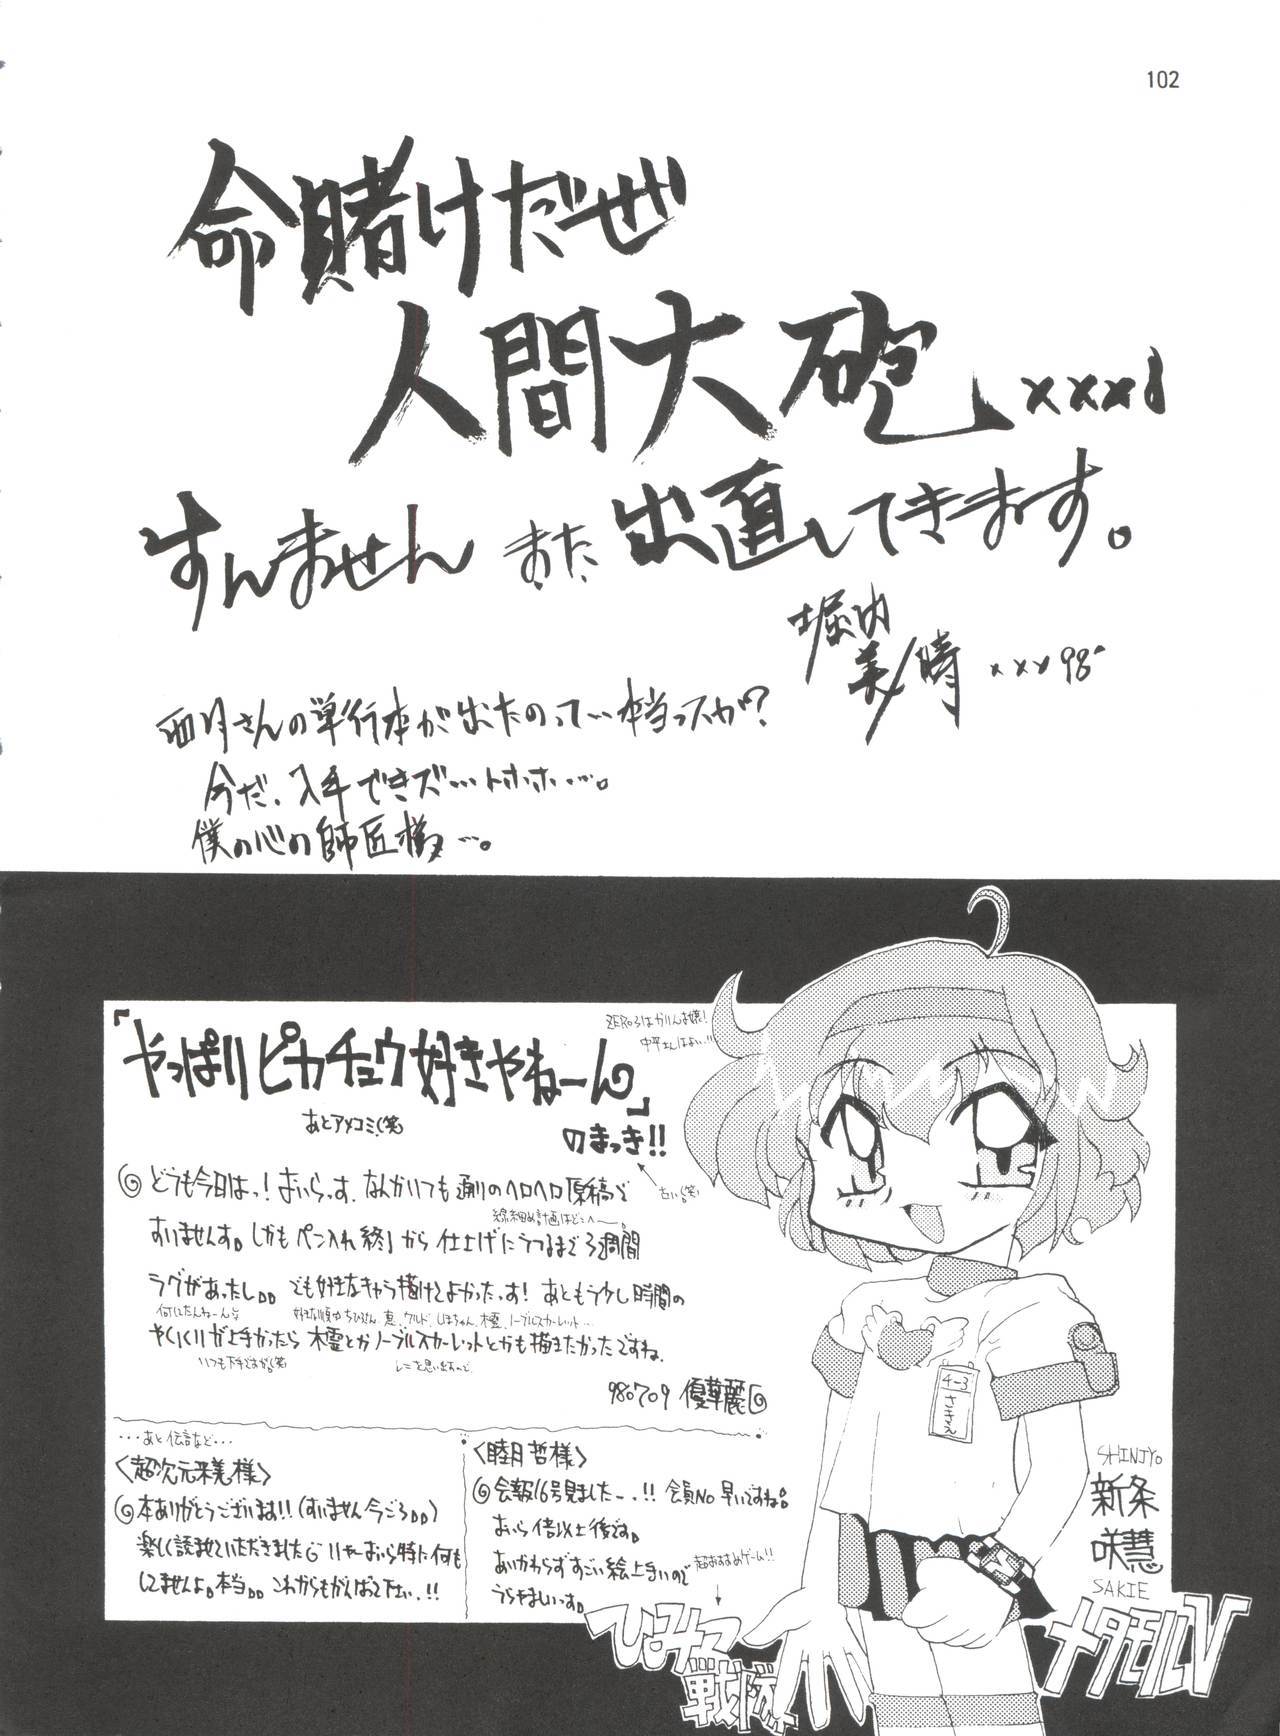 102
命賭けだぜ
人間大砲xxx!
すんません また 出直してきます。
堀内
美晴 xxx98'
さんの単行本が出たのって…本当っスか?
今だ、入手できズ…トホホ…。
僕の心の師匠様…。
ZERO3はかりんは嬢!
「やっぱりピカチュウ好きやねーん」
あとアメコミ(笑
のまっき!!
古い(笑)
どうも今日はっ! おいらっす. なんかいつも通りのヘロヘロ原稿で
線細め計画はどこへ〜。
すいませんす。しかもペン入れ終了から仕上げにうつるまで3週間
ラグがあったし。。 でも好きなキャラ描けてよかったっす! あともう少し時間の
何してたんねーん
やりくりが上手かったら 木霊とかノーブルスカーレットとかも描きたかったですね.
いつも下手ですが(笑
980709 優華麗
…あと伝言など…
〈超次元釆美様〉
本ありがとうございます!! (すいません今ごろ。。)
楽しく読ませていただきました いやーおいら特に何も
してませんよ。本当。。 これからもがんばって下さい.!!
〈睦月哲様〉
会報16号見ました〜.!! 会員No 早いですね。
おいら倍以上後です。
あいかわらずすごい絵上手いので
うらやましいっす。
超おすすめゲーム!!
4-3
さきえ
SHINJYO
新条
咲慧
SAKIE
ひみつ
戦隊
メタモルV